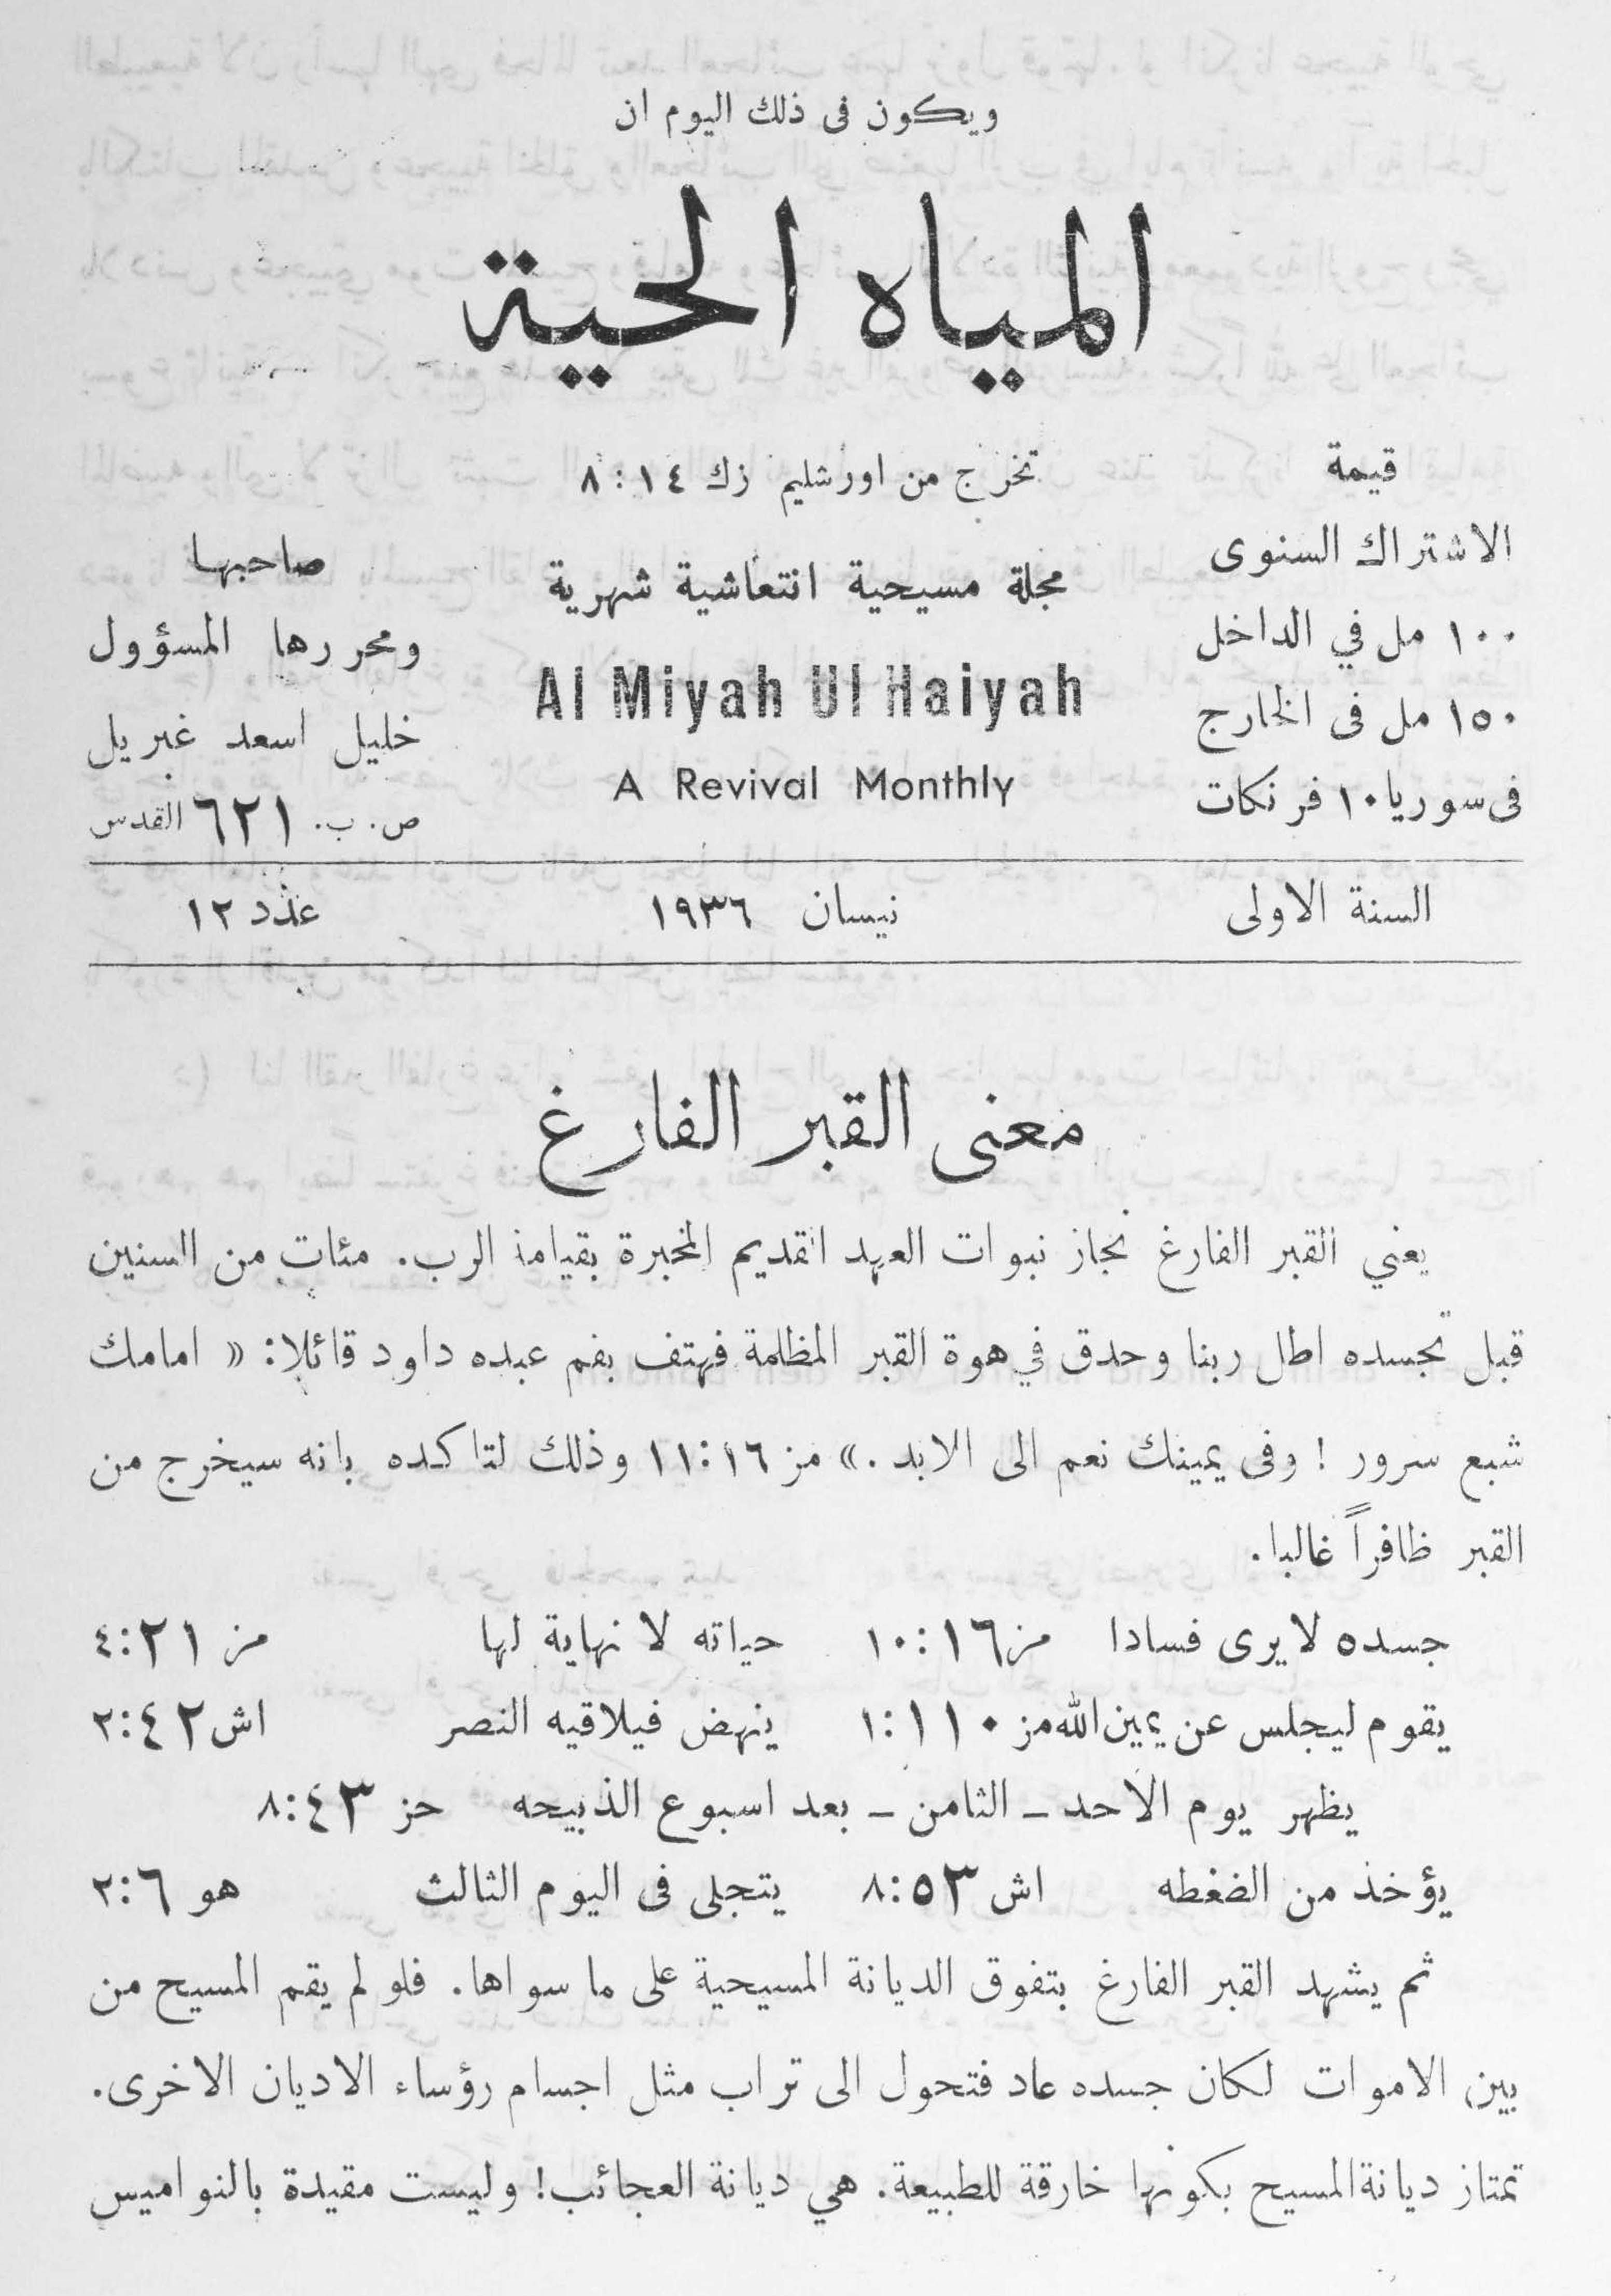 ويكون فى ذلك اليوم ان
المياه الحية
تخرج من اورشليم زك ١٤ : ٨
قيمة
الاشتراك السنوى
١٠٠ مل في الداخل
١٥٠ مل فى الخارج
فى سوريا ١٠ فرنكات
مجلة مسيحية انتعاشية شهرية
Al Miyah Ul Haiyah
A Revival Monthly
صاحبها
ومحررها المسؤول
خليل اسعد غبريل
ص. ب. ٦٢١ القدس
السنة الاولى نيسان ١٩٣٦ عدد ١٢
معنى القبر الفارغ
يعني القبر الفارغ نجاز نبوات العهد القديم المخبرة بقيامة الرب. مئات من السنين
قبل تجسده اطل ربنا وحدق في هوة القبر المظلمة فهتف بفم عبده داود قائلا: « امامك
شبع سرور ! وفى يمينك نعم الى الابد .» مز ١٦:١١ وذلك لتاكده بانه سيخرج من
القبر ظافراً غالبا.
جسده لا يرى فسادا مز ١٦:١٠ حياته لا نهاية لها مز ٢١:٤
يقوم ليجلس عن يمين الله مز ١١٠:١ ينهض فيلاقيه النصر اش ٤٢:٢
يظهر يوم الاحد ــ الثامن ــ بعد اسبوع الذبيحه حز ٤٣:٨
يؤخذ من الضغطه اش ٥٣:٨ يتجلى فى اليوم الثالث هو ٦:٢
ثم يشهد القبر الفارغ بتفوق الديانة المسيحية على ما سواها. فلو لم يقم المسيح من
بين الاموات لكان جسده عاد فتحول الى تراب مثل اجسام رؤساء الاديان الاخرى.
تمتاز ديانة المسيح بكونها خارقة للطبيعة. هي ديانة العجائب! وليست مقيدة بالنواميس